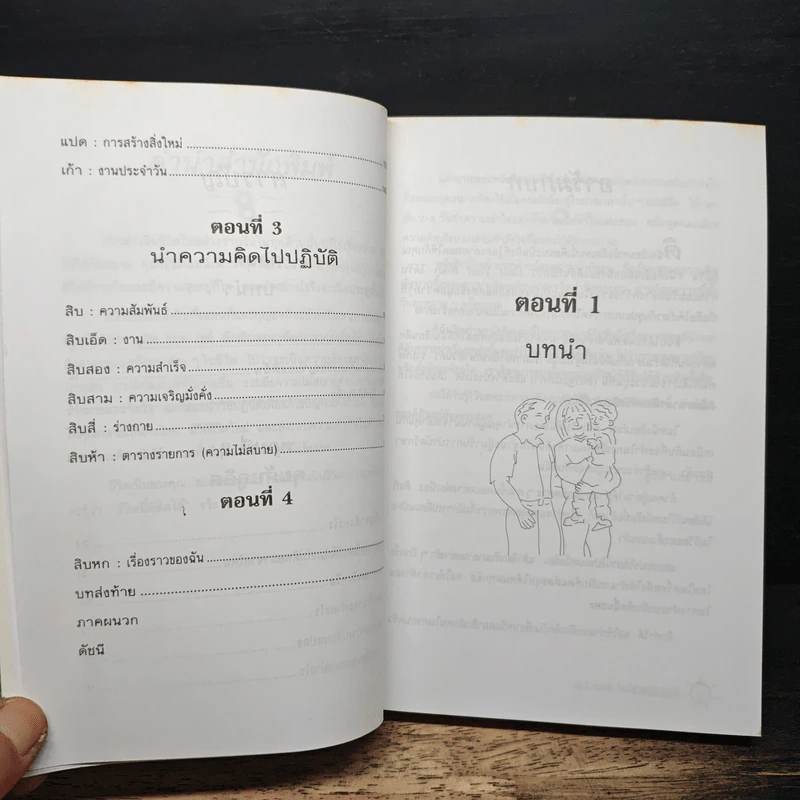 แปด : การสร้างสิ่งใหม่
เก้า : งานประจำวัน
ตอนที่ 3
นำความคิดไปปฏิบัติ
สิบ : ความสัมพันธ์
สิบเอ็ด : งาน
สิบสอง : ความสำเร็จ
สิบสาม : ความเจริญมั่งคั่ง
สิบสี่ : ร่างกาย
สิบห้า : ตารางรายการ (ความไม่สบาย)
ตอนที่ 4
สิบหก : เรื่องราวของฉัน
บทส่งท้าย
ภาคผนวก
ดัชนี
ตอนที่ 1
บทนำ